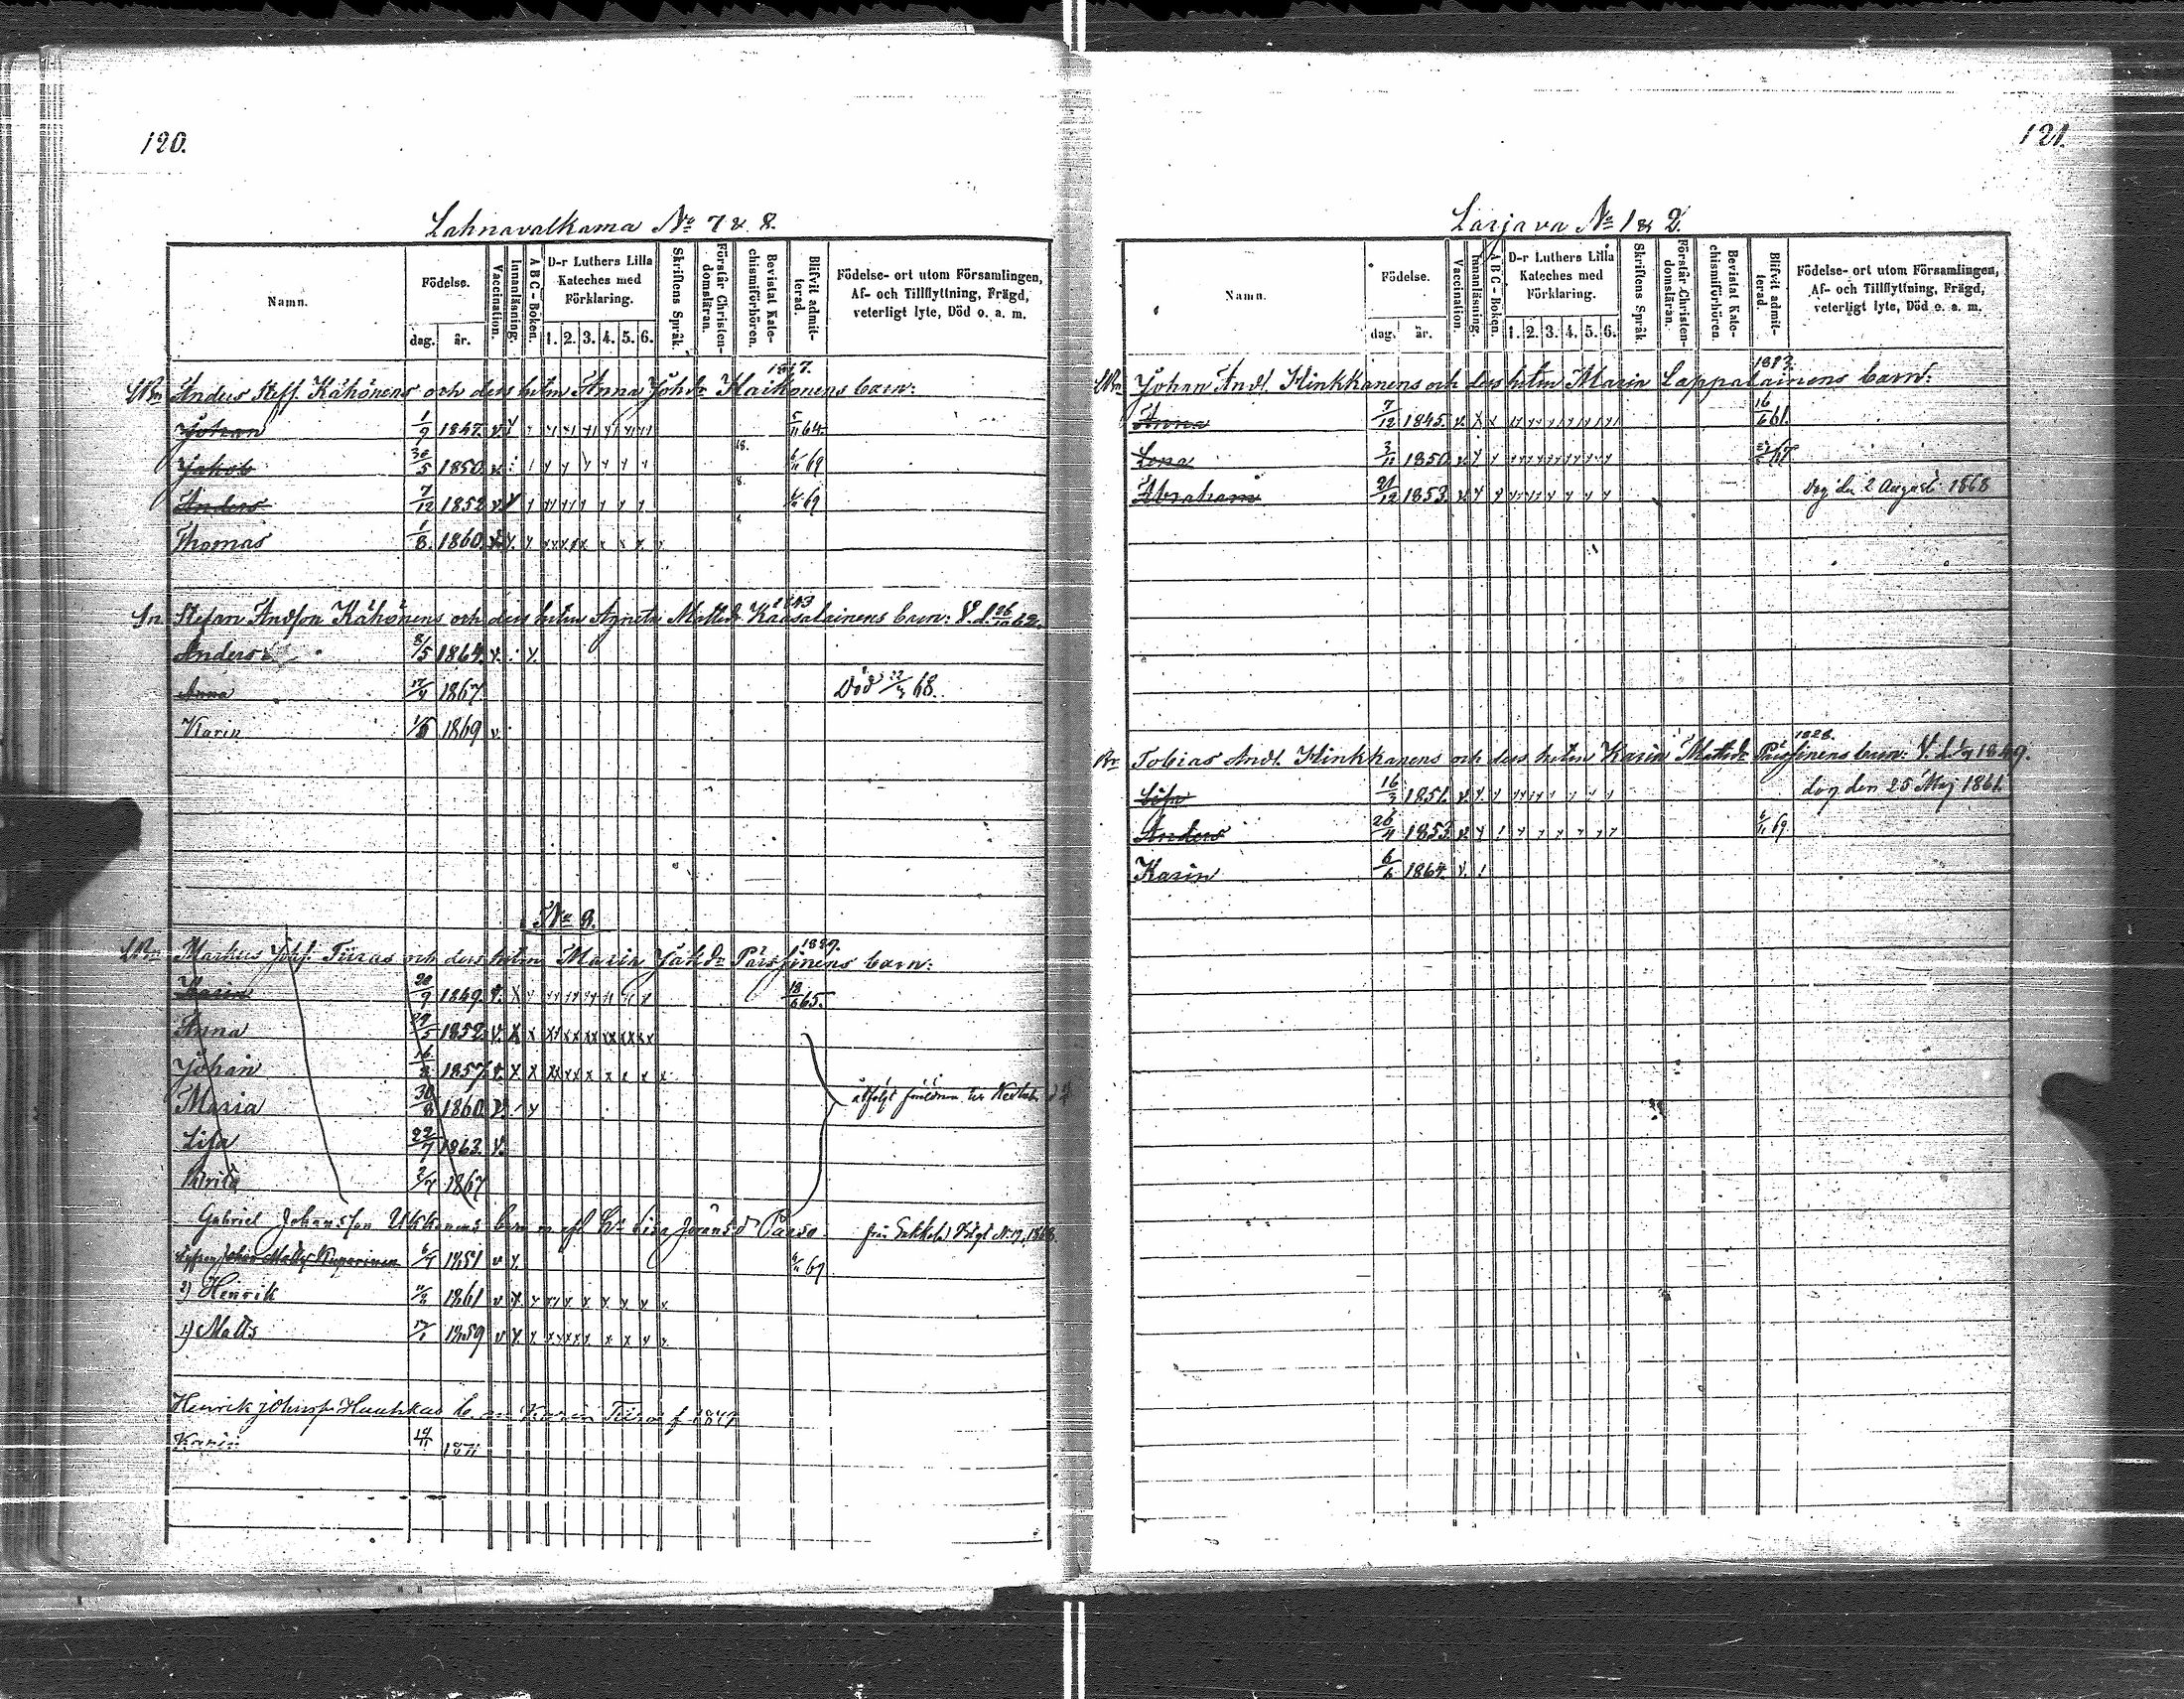 120.
Lahnavalkama No 7 & 8.
Namn.
Födelse.
dag.
år.
Vaccination.
Innanläsning.
A B C - Boken.
D-r Luthers Lilla Kateches med Förklaring.
1. 2. 3. 4. 5. 6.
Skriftens Språk.
Förstår Christendomsläran.
Bevistat Katechismiförhören.
Blifvit admitterad.
Födelse- ort utom Församlingen, Af- och Tillflyttning, Frägd, veterligt lyte, Död o. a. m.
Anders Steff. Kähönens och dess hstru Anna Johdr Maikonens barn:
Johan 1/9 1847. v 5/11 64.
Jakob 30/5 1850 v 6/11 69
Anders 7/12 1852 v 6/11 69
Thomas 1/8 1860. v
Stefan Andson Kähönens och dess hstru Agneta Mattsdr Kaasalainens barn:
Anders 8/5 1864. v.
Anna 1867. Död 68.
Karin 1869 v
No 8.
1827.
Markus Johs. Tiiras och dess hstru Maria Jakdr Pärssinens barn:
Karin 20/9 1849. v. 18/6 65.
Anna 1852. v.
Johan 16/8 1857 v.
Maria 30/8 1860 v
Lisa 22/7 1863. v.
Brita 2/7 1867
åtföljt föräldrarna
Gabriel Johansson Ukkonens barn
från Sakkola 1868
Johan Matts Kuparinen 1851 v 6/11 69
2) Henrik 1861 v
1) Matts 17/1 1859 v
Henrik Johansson Karin Tiiras f. 1849
Karin 1871
121.
Larjava No 1 & 2.
Namn.
Födelse.
dag.
år.
Vaccination.
Innanläsning.
A B C - Boken.
D-r Luthers Lilla Kateches med Förklaring.
1. 2. 3. 4. 5. 6.
Skriftens Språk
Förstår Christendomslärán.
Bevistat Katechismiförhören.
Blifvit admitterad.
Födelse- ort utom Församlingen, Af- och Tillflyttning, Frägd, veterligt lyte, Död o. a. m.
Johan And. Hinkkanens och dess hstru Maria Lappalainens barn:
Anna 7/12 1845. v. 16/6 61.
Lena 3/11 1850 v. 67
Abraham 21/12 1853. v. dog den 2 Augusti 1868
1828.
Tobias And. Hinkkanens och dess hstru Karin Mattsdr Pärssinens barn: 1849.
Lisa 16/3 1851. v. dog den 25 Maj 1861.
Anders 26/11 1853 v. 6/11 69.
Karin 6/6 1864. v.